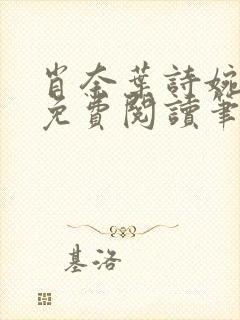 肖奈葉詩婉
免費閱讀筆
基洛